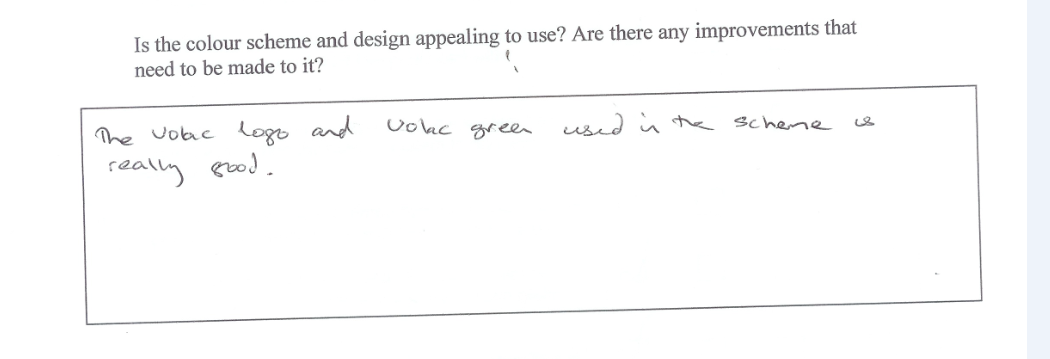 Is the colour scheme and design appealing to use? Are there any improvements that
need to be made to it?
The Volac logo and Volac green used in the scheme is
really good.